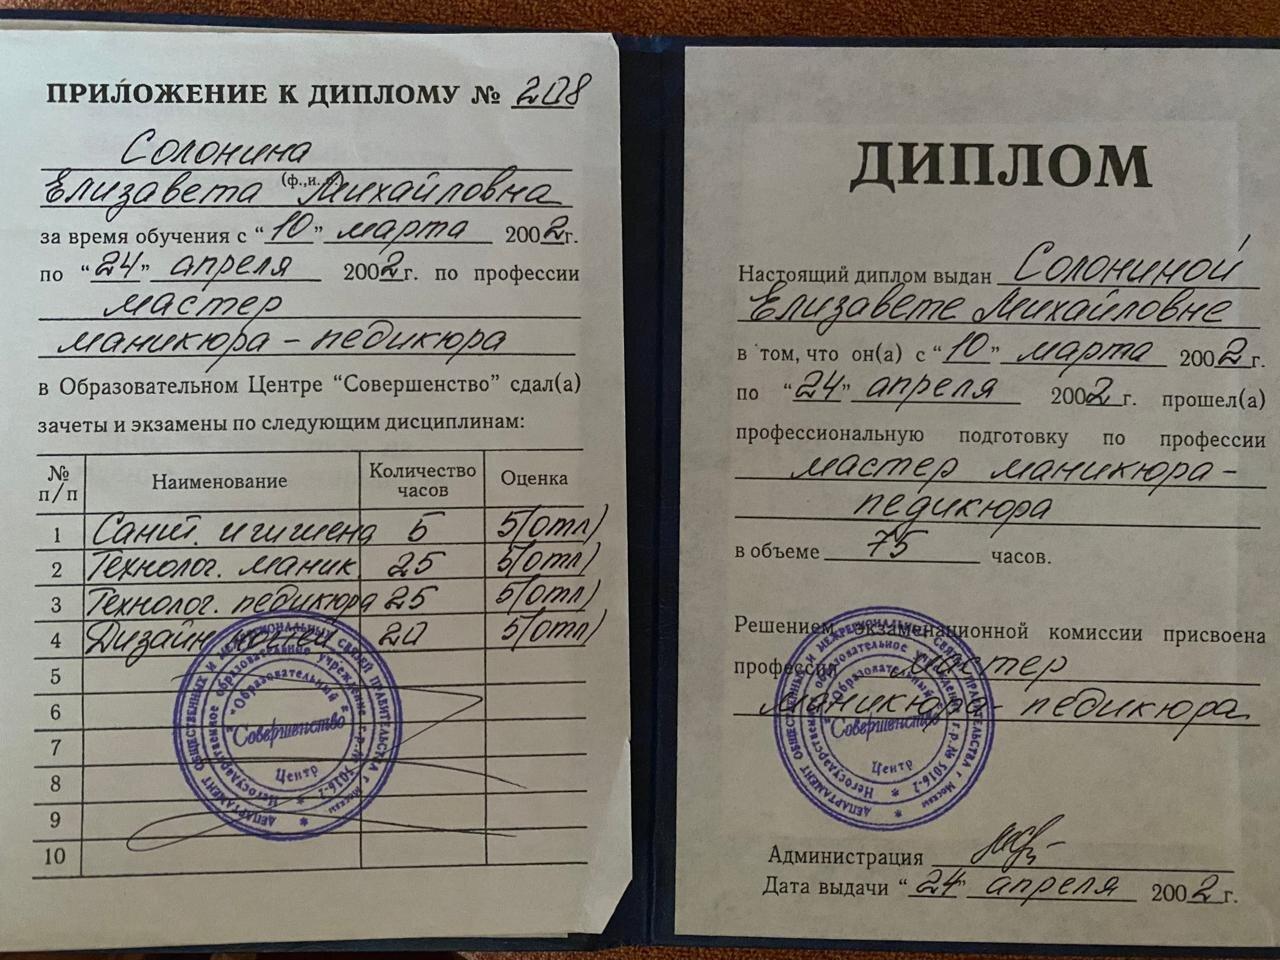 ПРИЛОЖЕНИЕ К ДИПЛОМУ № 208
Солонина
Елизавета Михайловна
(ф.,и.,
за время обучения с “10” марта 2002г.
по “24” апреля 2002г. по профессии
мастер
маникюра - педикюра
в Образовательном Центре “Совершенство” сдал(а)
зачеты и экзамены по следующим дисциплинам:
№ п/п Наименование Количество часов Оценка
1 Санит. и гигиена 5 5(отл)
2 Технолог. маник. 25 5(отл)
3 Технолог. педикюра 25 5(отл)
4 Дизайн ногтей 20 5(отл)
5
6
7
8
9
10
ДЕПАРТАМЕНТ ОБЩЕСТВЕННЫХ И МЕЖРЕГИОНАЛЬНЫХ СВЯЗЕЙ ПРАВИТЕЛЬСТВА г. Москвы
Негосударственное образовательное учреждение г.р.№ 5016-2
"Образовательный
Центр
"Совершенство
ДИПЛОМ
Настоящий диплом выдан Солониной
Елизавете Михайловне
в том, что он(а) с “10” марта 2002г.
по “24” апреля 2002г. прошел(а)
профессиональную подготовку по профессии
мастер маникюра-
педикюра
в объеме 75 часов.
Решением экзаменационной комиссии присвоена
профессия мастер
маникюра - педикюра
ДЕПАРТАМЕНТ ОБЩЕСТВЕННЫХ И МЕЖРЕГИОНАЛЬНЫХ СВЯЗЕЙ ПРАВИТЕЛЬСТВА г. Москвы
Негосударственное образовательное учреждение г.р.№ 5016-2
"Образовательный
Центр
"Совершенство
Администрация
Дата выдачи “24” апреля 2002г.